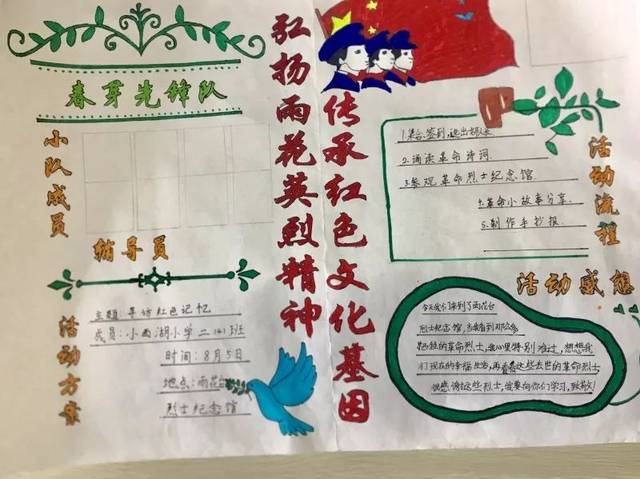 春芽先锋队
小队成员
辅导员
活动方案
主题:寻访红色记忆
成员:小西湖小学二(4)班
时间:8月5日
地点:雨花台
烈士纪念馆
弘扬雨花英烈精神
传承红色文化基因
活动流程
1.集合,签到,选出队长
2.诵读革命诗词.
3.参观革命烈士纪念馆.
4.革命小故事分享.
5.制作手抄报.
活动感想
今天我们来到了雨花台
烈士纪念馆,当我看到那么多
的革命烈士,我心里特别难过,想想我
们现在的幸福生活,再看看这些去世的革命烈士
我想对这些烈士,我要向你们学习,致敬!